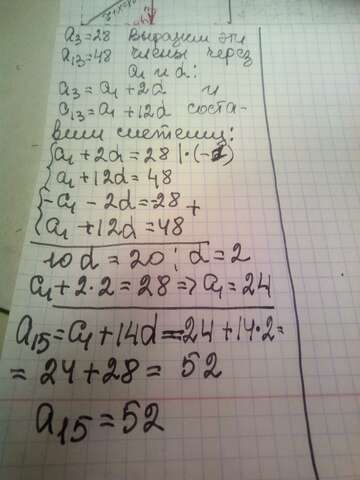 a₃=28 выразим эти
a₁₃=48 члены через
a₁ и d:
a₃=a₁+2d и
a₁₃=a₁+12d соста-
вим систему:
a₁+2d=28 |·(-1)
a₁+12d=48
-a₁-2d=-28 +
a₁+12d=48
10d=20; d=2
a₁+2·2=28=>a₁=24
a₁₅=a₁+14d=24+14·2=
=24+28=52
a₁₅=52